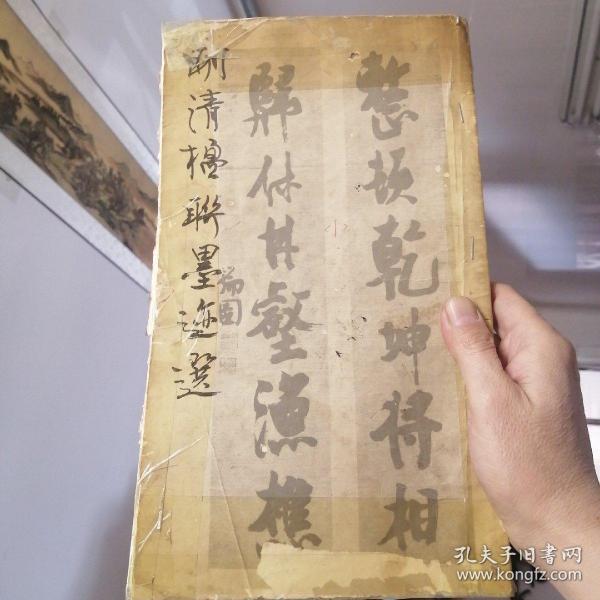 整顿乾坤将相
归休林壑渔樵
瑞图
明清楹联墨迹选
孔夫子旧书网
www.kongfz.com